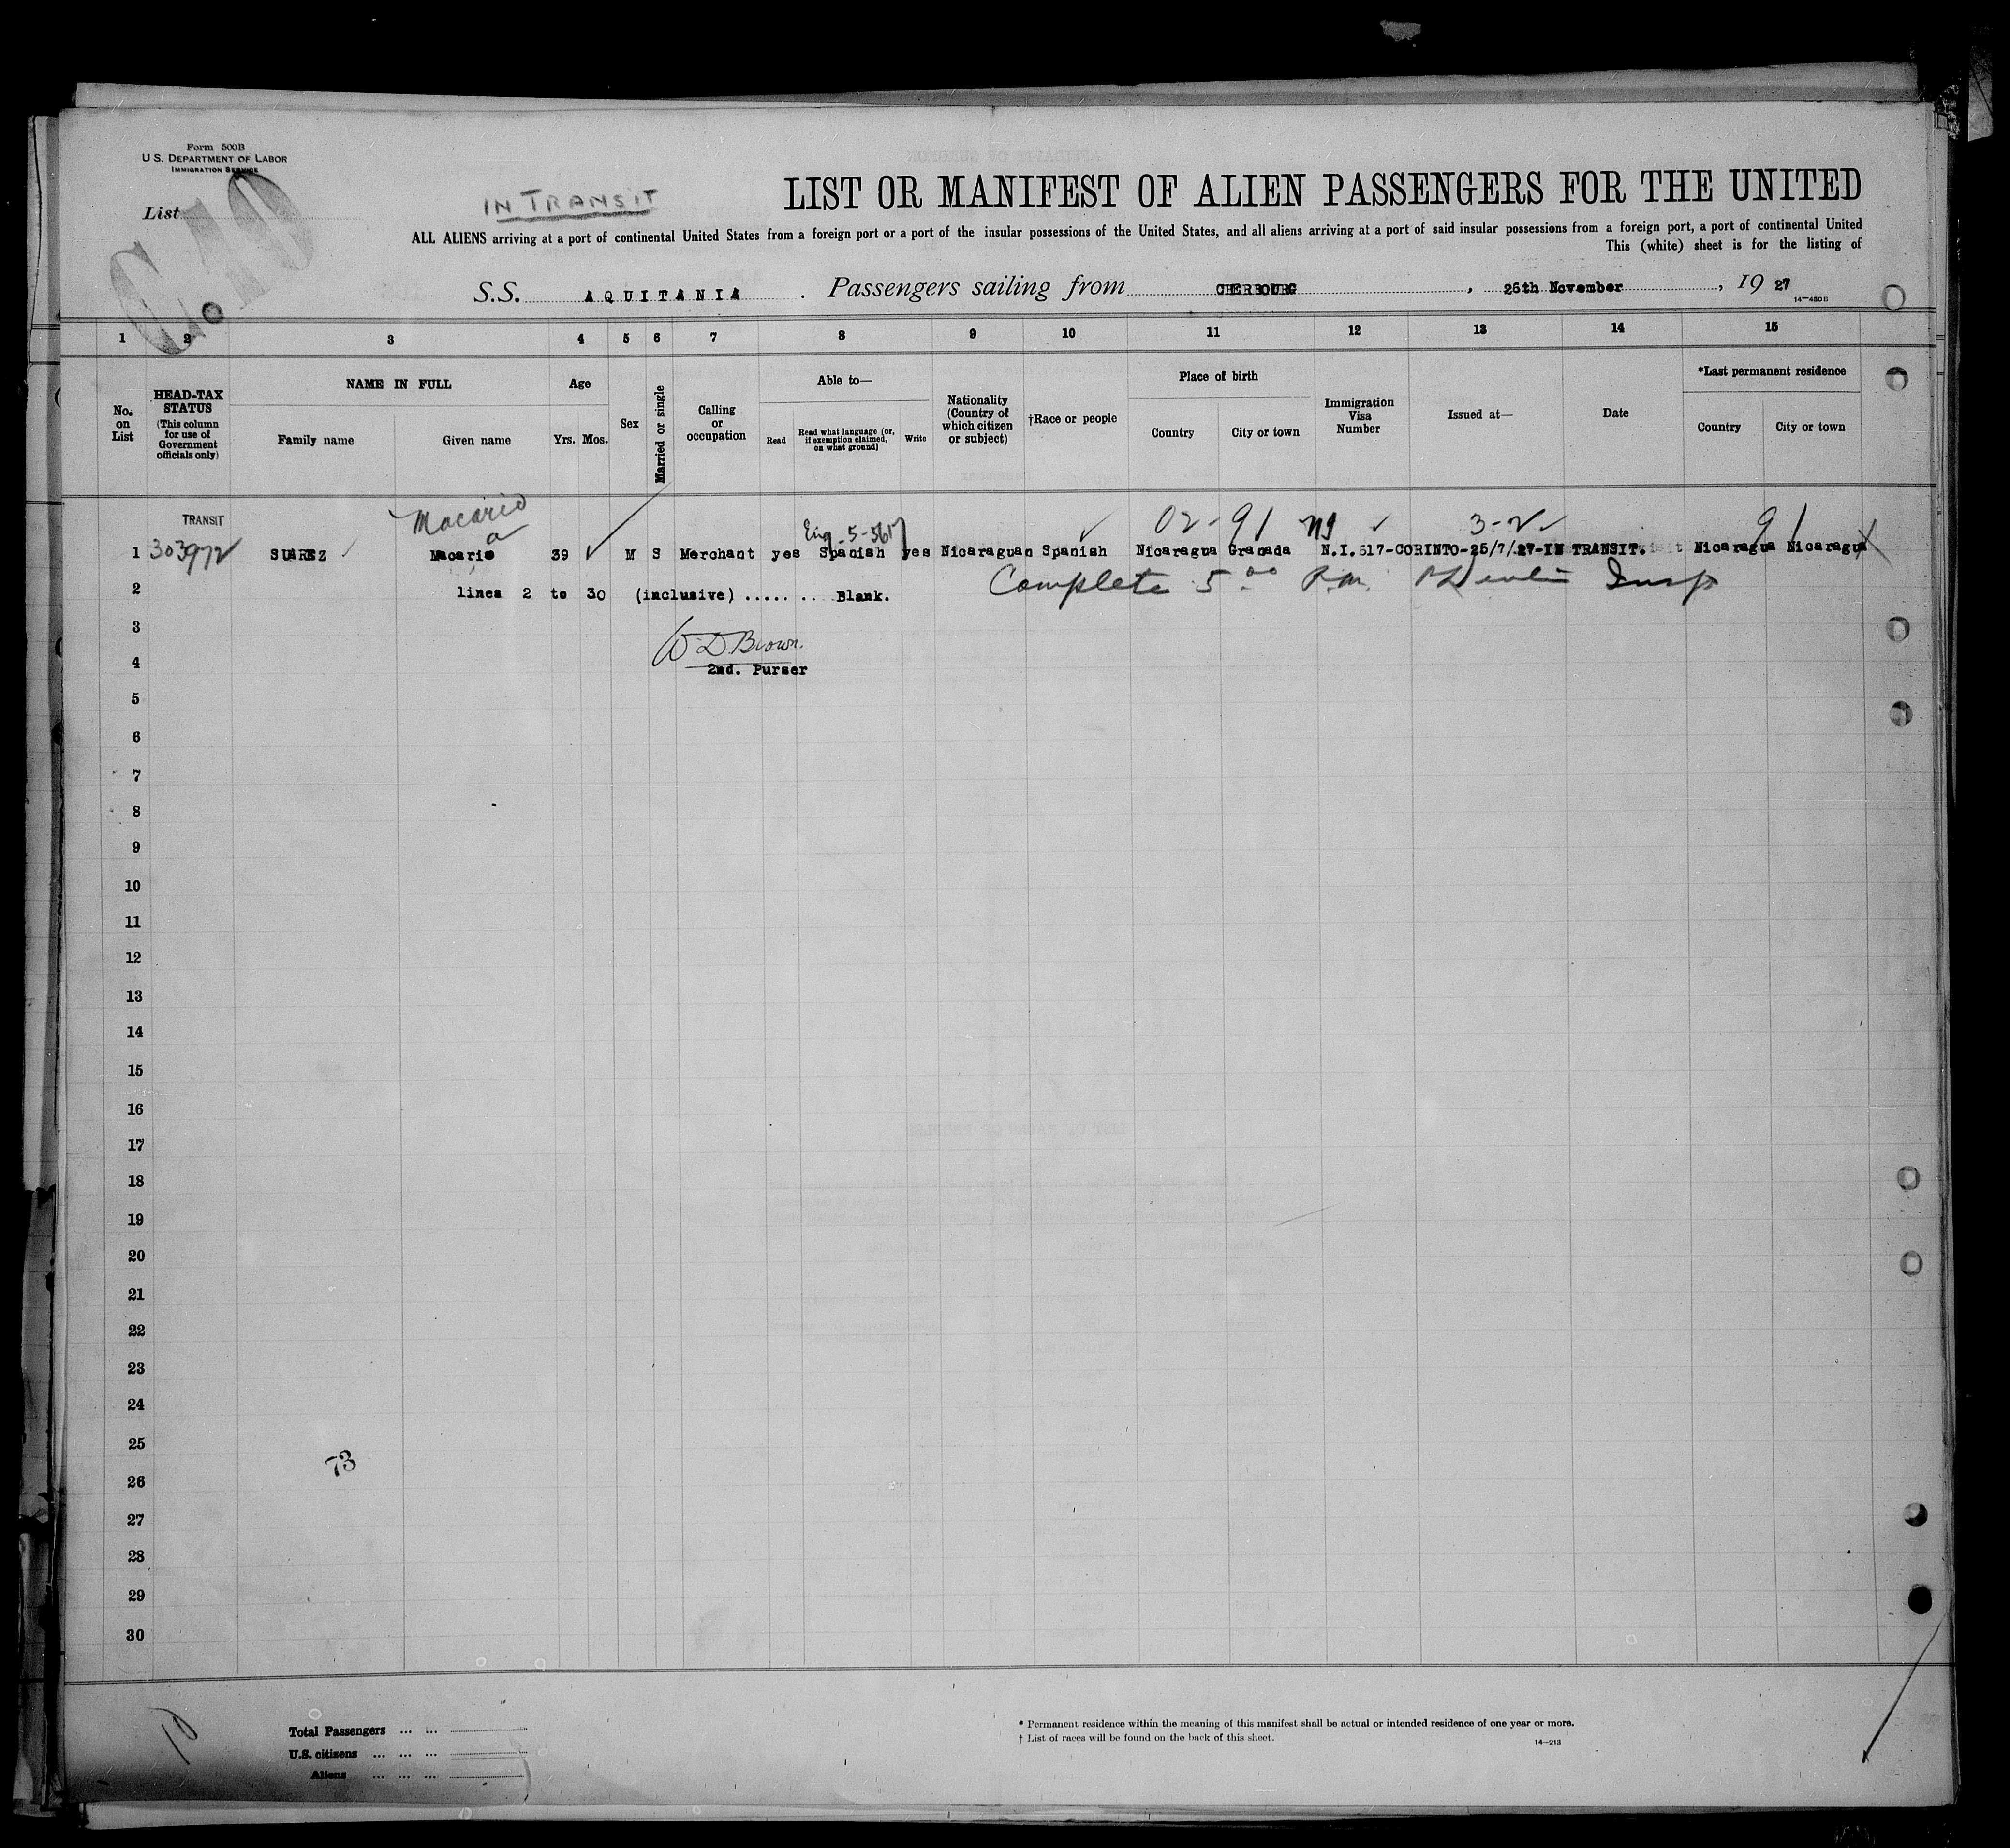 Form 500B
U.S. DEPARTMENT OF LABOR
IMMIGRATION SERVICE
List
IN TRANSIT
LIST OR MANIFEST OF ALIEN PASSENGERS FOR THE UNITED
ALL ALIENS arriving at a port of continental United States from a foreign port or a port of the insular possessions of the United States, and all aliens arriving at a port of said insular possessions from a foreign port, a port of continental United
This (white) sheet is for the listing of
S.S. AQUITANIA. Passengers sailing from CHERBOURG, 26th November, 1927
14—480B
1 2 3 4 5 6 7 8 9 10 11 12 13 14 15
No. on List
HEAD-TAX STATUS (This column for use of Government officials only)
NAME IN FULL
Family name
Given name
Age
Yrs. Mos.
Sex
Married or single
Calling or occupation
Able to—
Read
Read what language (or, if exemption claimed, on what ground)
Write
Nationality (Country of which citizen or subject)
†Race or people
Place of birth
Country
City or town
Immigration Visa Number
Issued at—
Date
*Last permanent residence
Country
City or town
TRANSIT
Macario
Eng. 02-91 3-2 91
1 303972 SUAREZ Macario 39 M S Merchant yes Spanish yes Nicaraguan Spanish Nicaragua Granada N.I.617-CORINTO-25/7/27-IN TRANSIT. Nicaragua Nicaragua
2 lines 2 to 30 (inclusive) ....... Blank. Complete 5 00 P.M. Insp
3
W D Brown.
4
2nd. Purser
5
6
7
8
9
10
11
12
13
14
15
16
17
18
19
20
21
22
23
24
25
73
26
27
28
29
30
10
Total Passengers ... ...
U.S. citizens ... ... ...
Aliens ... ... ...
* Permanent residence within the meaning of this manifest shall be actual or intended residence of one year or more.
† List of races will be found on the back of this sheet.
14—213